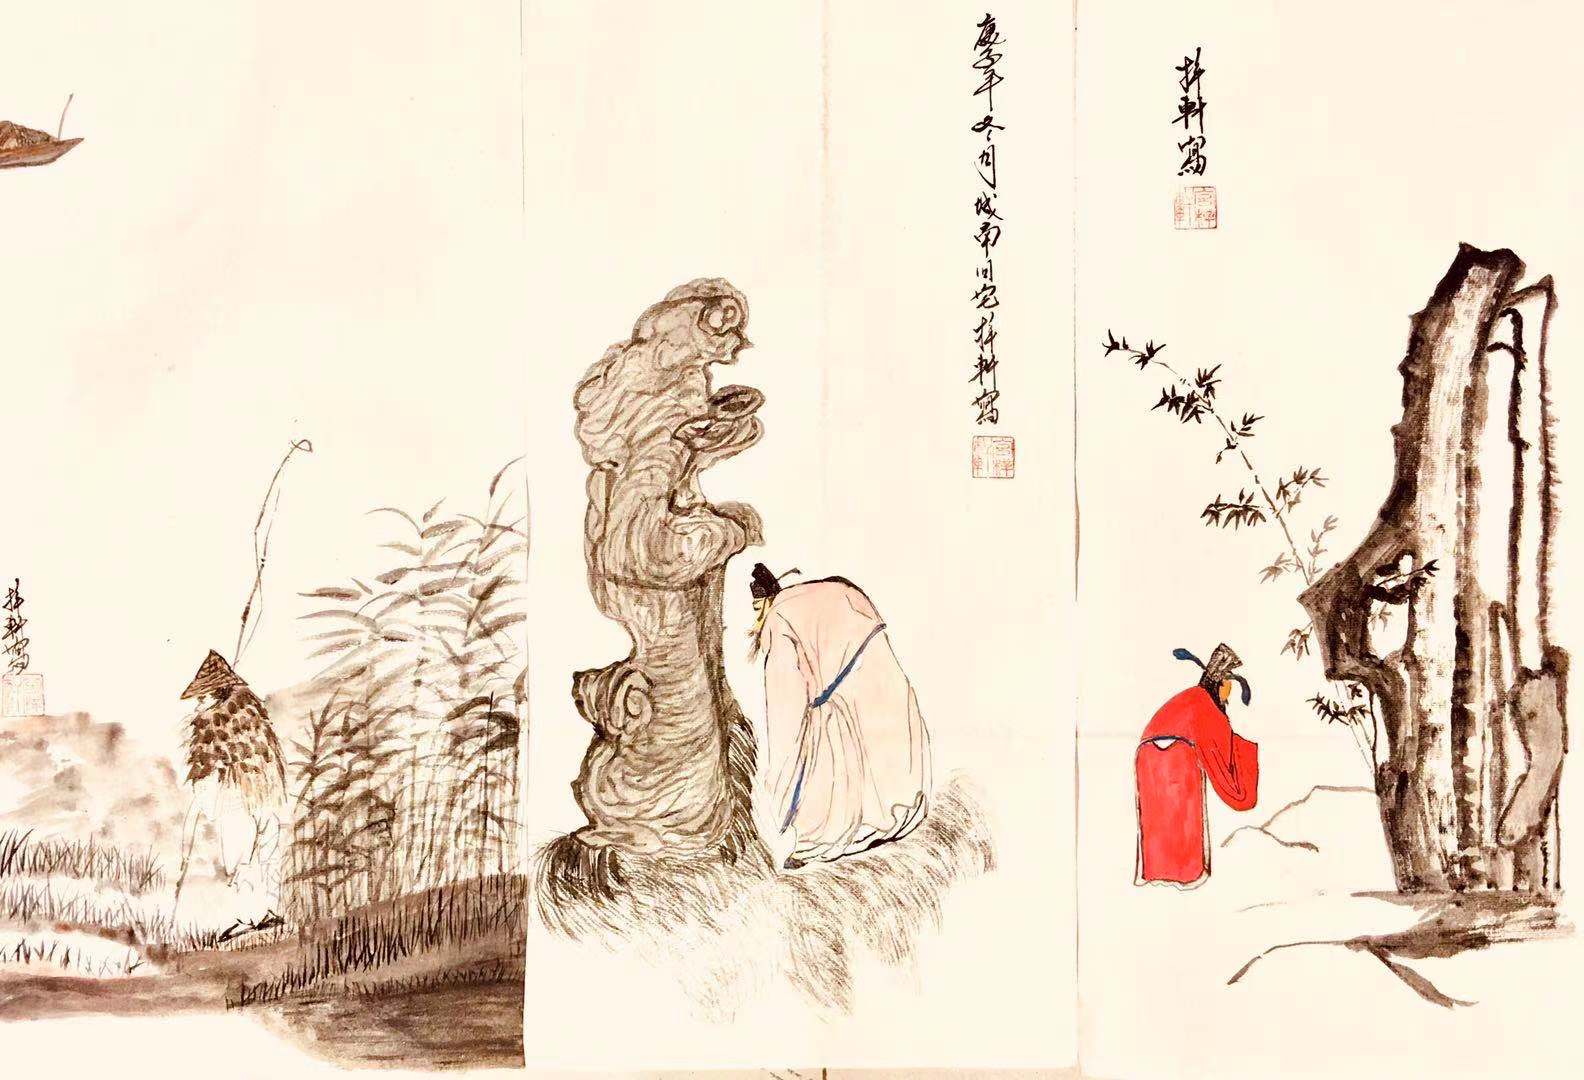 梓軒寫
庚子年冬月城南旧宅梓軒寫
梓軒寫